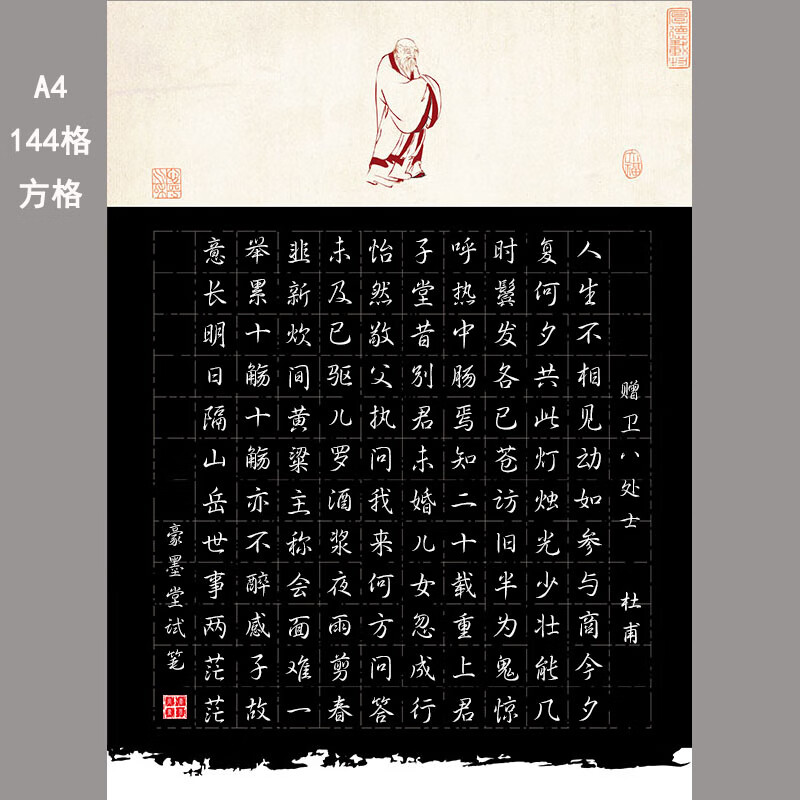 A4
144格
方格
赠卫八处士 杜甫
人生不相见动如参与商今夕
复何夕共此灯烛光少壮能几
时鬓发各已苍访旧半为鬼惊
呼热中肠焉知二十载重上君
子堂昔别君未婚儿女忽成行
怡然敬父执问我来何方问答
未及已驱儿罗酒浆夜雨剪春
韭新炊间黄粱主称会面难一
举累十觞十觞亦不醉感子故
意长明日隔山岳世事两茫茫
豪墨堂试笔